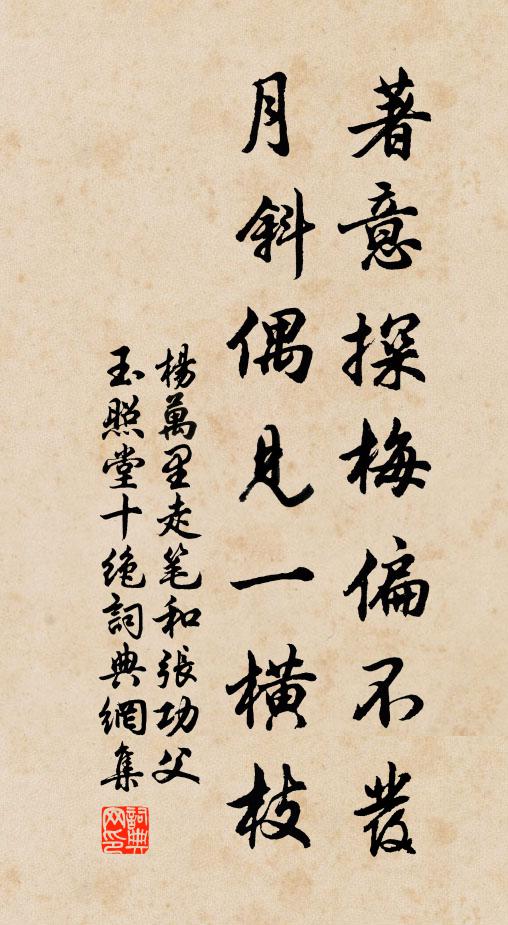 著意探梅偏不發
月斜偶見一橫枝
楊萬里走笔和張功父
玉照堂十絶詞典網集
詞典网印